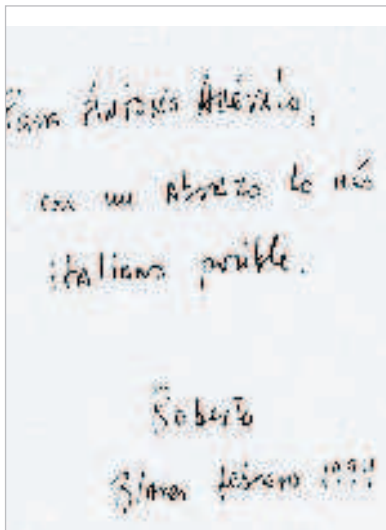 Para Antonio Arévalo,
con un Abrazo lo más
italiano posible.
Roberto
Blanes febrero